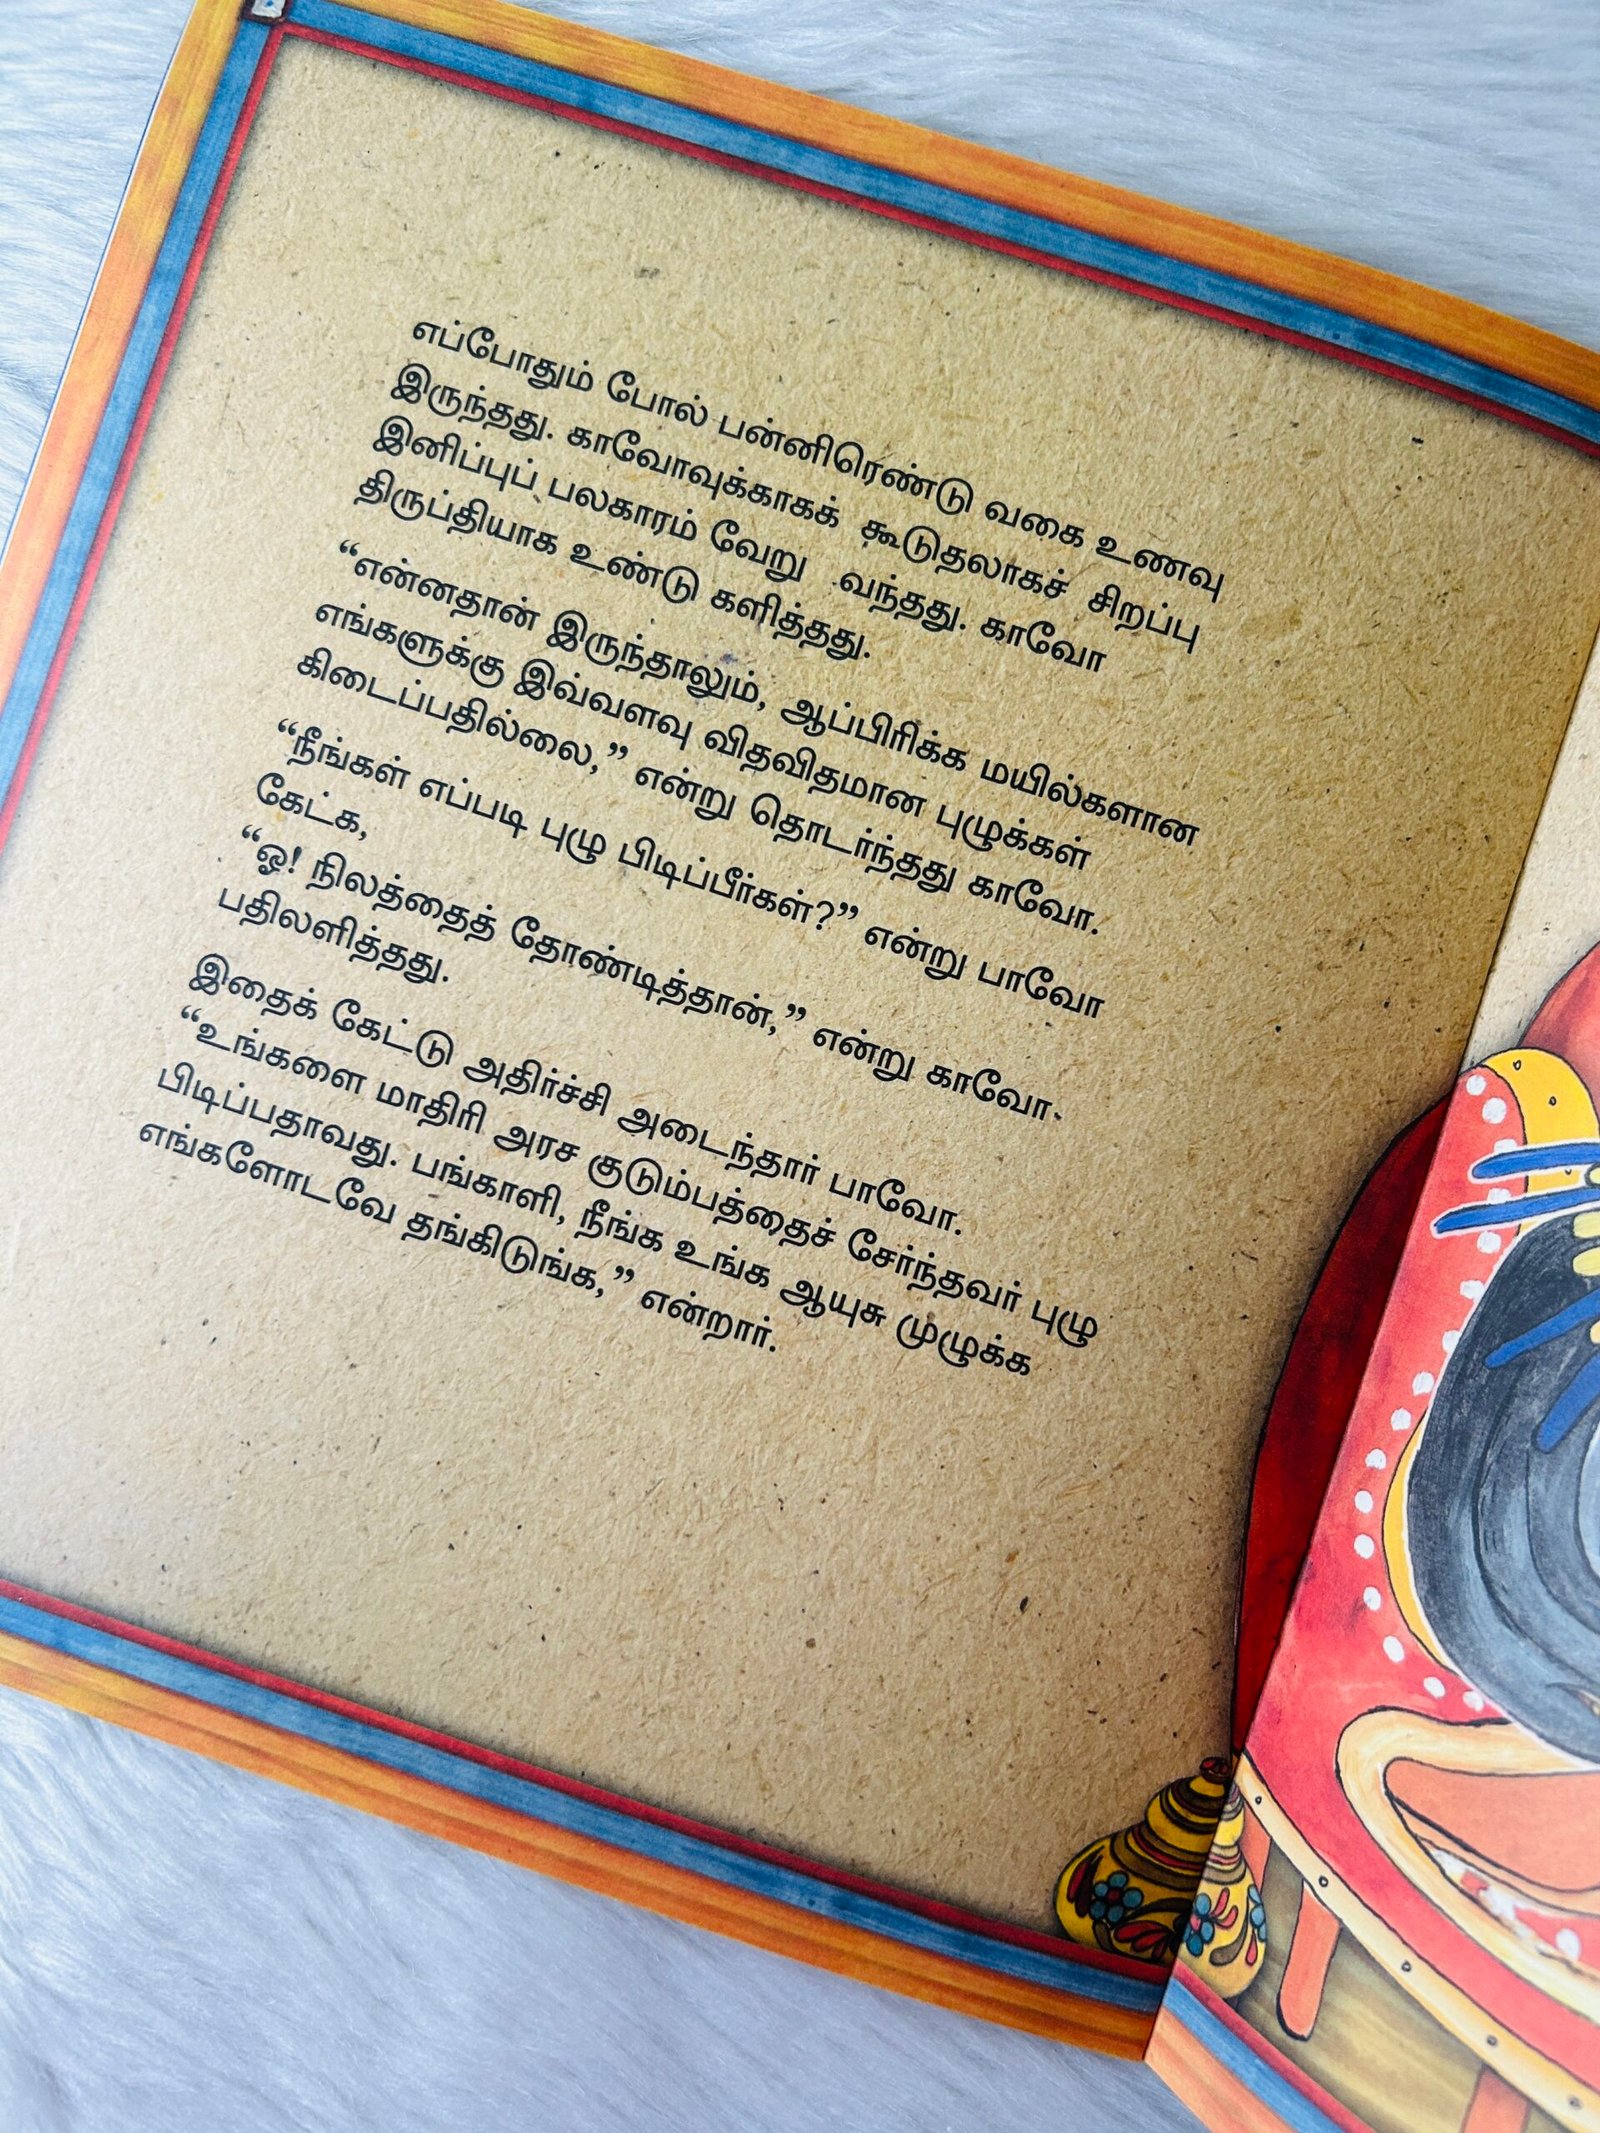 எப்போதும் போல் பன்னிரெண்டு வகை உணவு
இருந்தது. காவோவுக்காகக் கூடுதலாகச் சிறப்பு
இனிப்புப் பலகாரம் வேறு வந்தது. காவோ
திருப்தியாக உண்டு களித்தது.
“என்னதான் இருந்தாலும், ஆப்பிரிக்க மயில்களான
எங்களுக்கு இவ்வளவு விதவிதமான புழுக்கள்
கிடைப்பதில்லை,” என்று தொடர்ந்தது காவோ.
“நீங்கள் எப்படி புழு பிடிப்பீர்கள்?” என்று பாவோ
கேட்க,
“ஓ! நிலத்தைத் தோண்டித்தான்,” என்று காவோ
பதிலளித்தது.
இதைக் கேட்டு அதிர்ச்சி அடைந்தார் பாவோ.
“உங்களை மாதிரி அரச குடும்பத்தைச் சேர்ந்தவர் புழு
பிடிப்பதாவது. பங்காளி, நீங்க உங்க ஆயுசு முழுக்க
எங்களோடவே தங்கிடுங்க,” என்றார்.